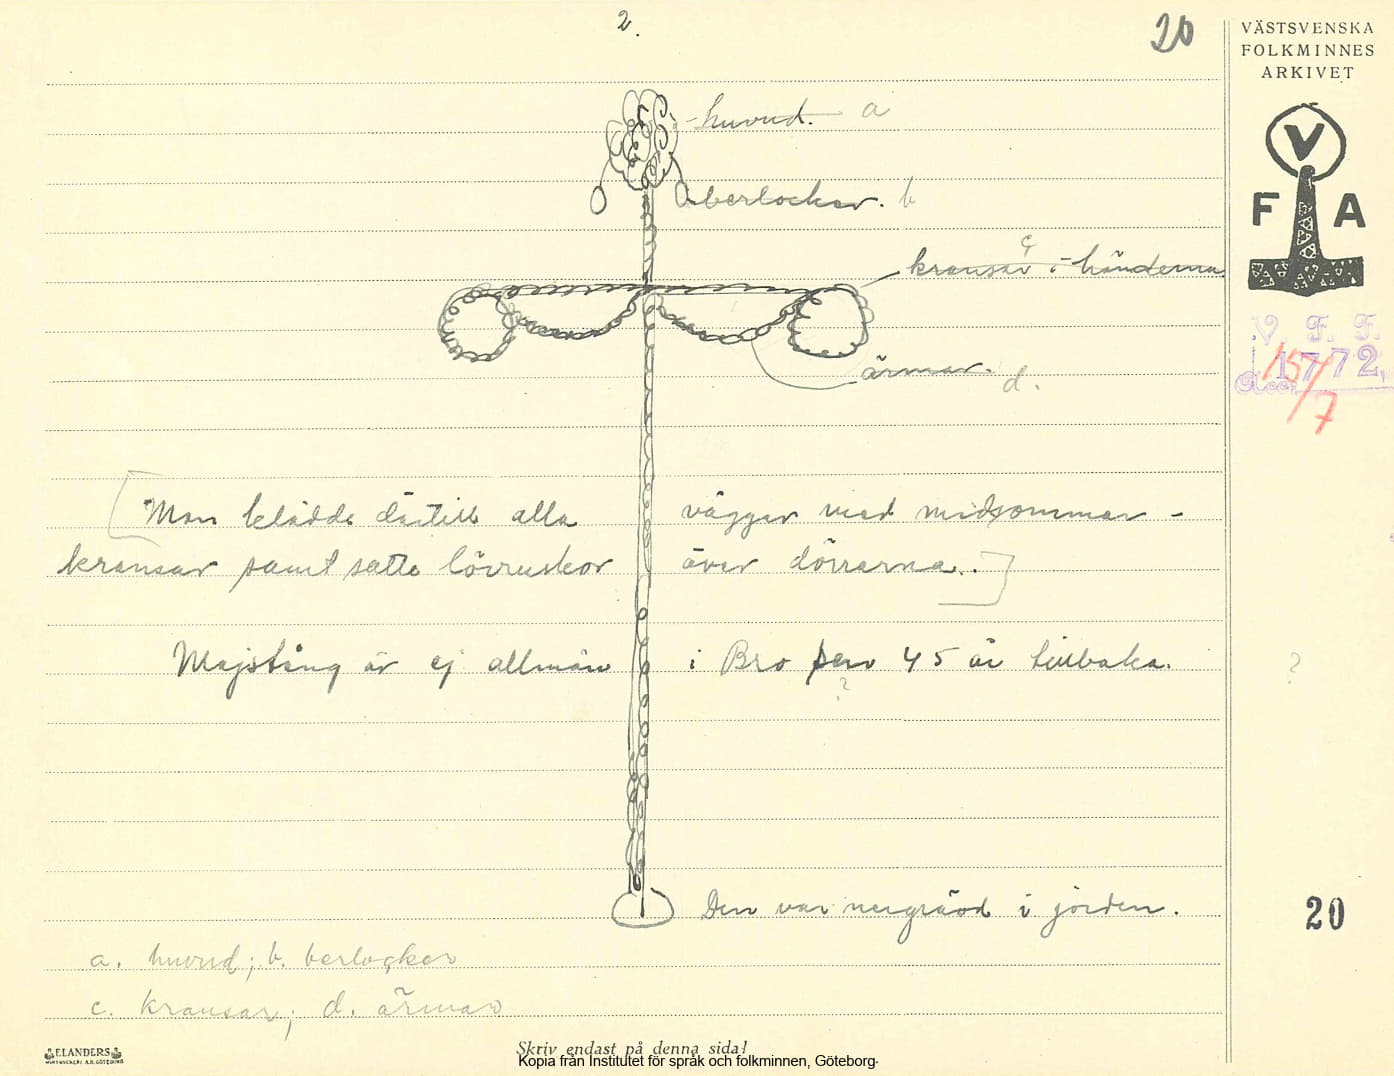 2.
20
VÄSTSVENSKA
FOLKMINNES
ARKIVET
V
F A
huvud. a
berlocker. b
c
kransar i händerna
V. F. F.
1772.
Acc.
157/7
ärmar. d.
Man klädde därtill alla väggar med midsommar-
kransar samt satte lövruskor över dörrarna.
Majstång är ej allmän i Bro sen 45 år tillbaka.
?
?
Den var nergrävd i jorden.
20
a. huvud; b. berlocker
c. kransar; d. ärmar
ELANDERS
Skriv endast på denna sida!
Kopia från Institutet för språk och folkminnen, Göteborg.